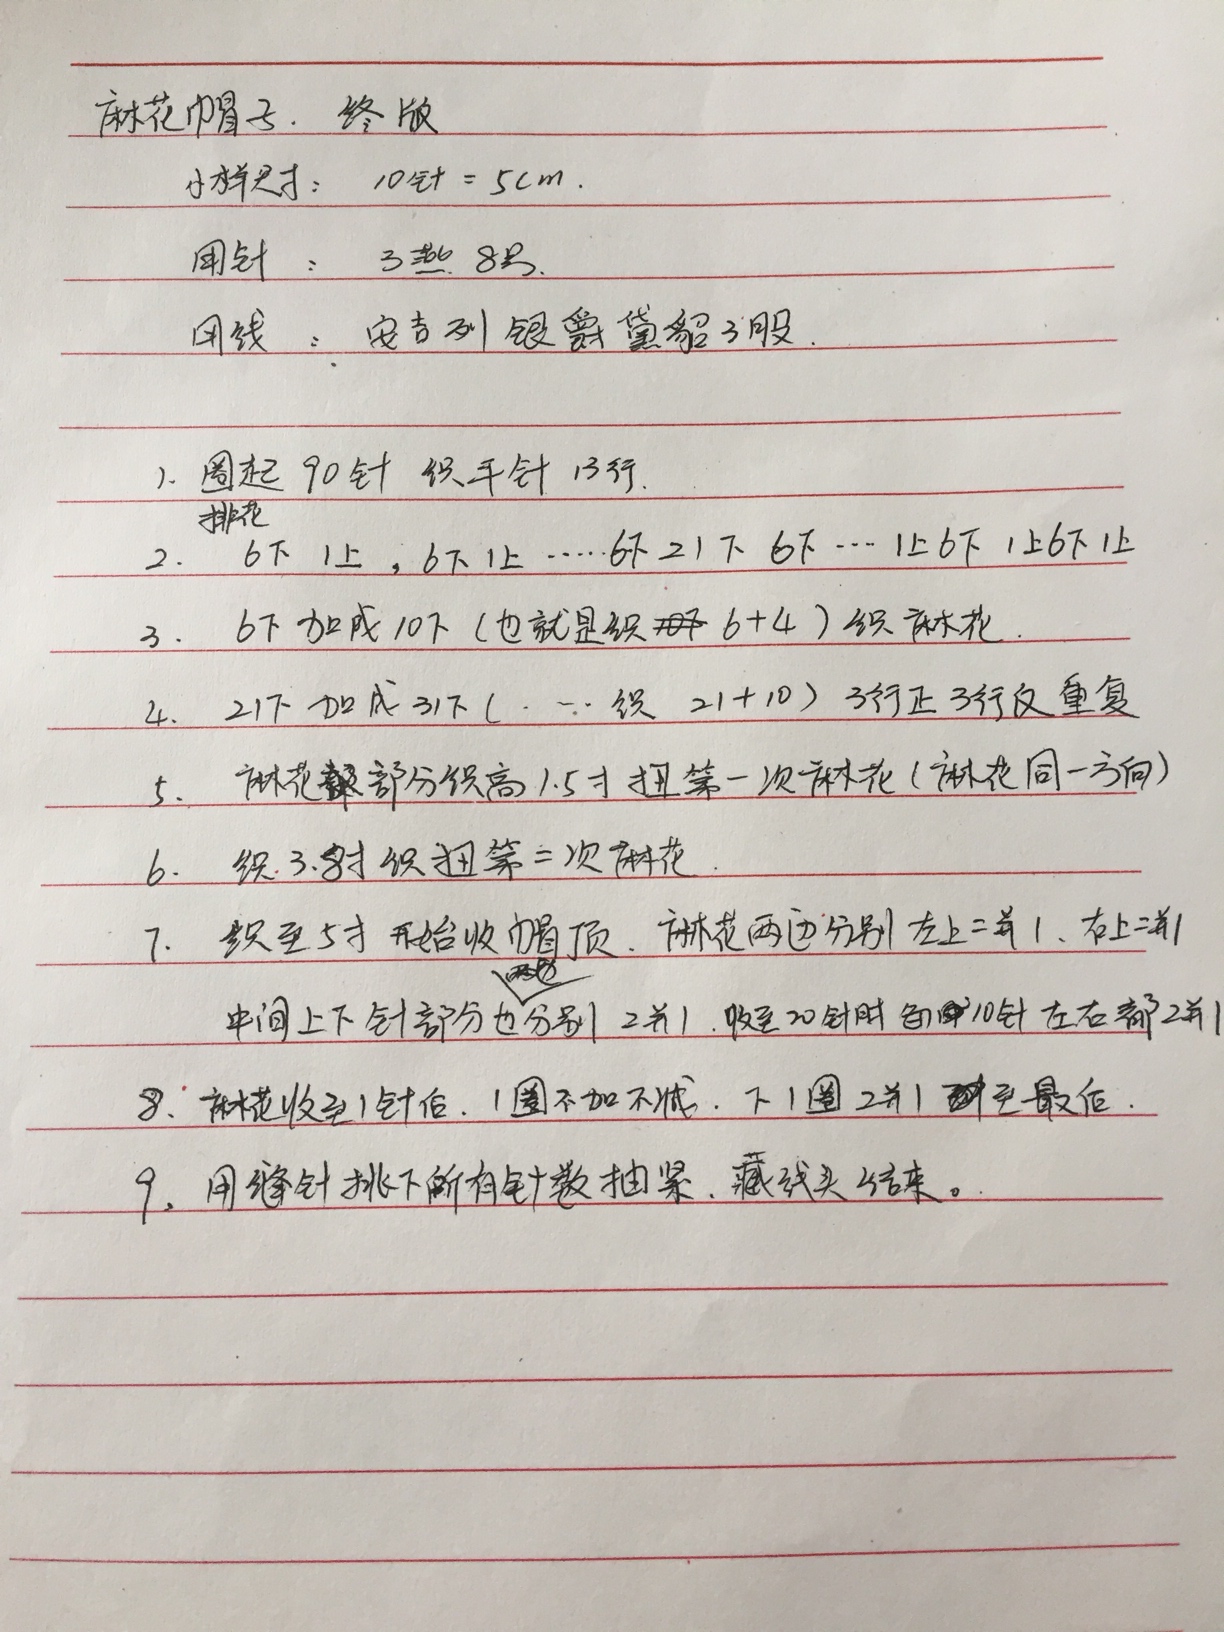 麻花帽子. 终版
小样尺寸: 10针 = 5cm.
用针 : 3燕 8号.
用线 : 安吉列银爵黛貂3股.
1. 圈起 90针 织平针 13行.
排花
2. 6下 1上, 6下1上 ……6下 21下 6下 … 1上6下 1上6下1上
3. 6下 加成 10下 (也就是织 6+4) 织麻花.
4. 21下 加成 31下 ( … 织 21+10) 3行正3行反重复
5. 麻花部分织高1.5寸扭第一次麻花(麻花同一方向)
6. 织3.8寸织扭第二次麻花.
7. 织至5寸开始收帽顶. 麻花两边分别左上二并1、右上二并1
中间上下针部分也分别2并1. 收至20针时 10针左右都2并1
8. 麻花收至1针后. 1圈不加不减. 下1圈2并1 至最后.
9. 用缝针挑下所有针数抽紧. 藏线头结束。